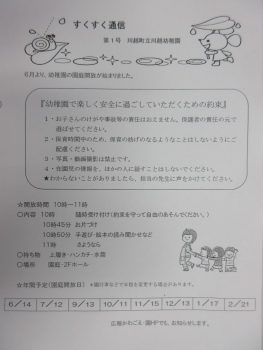 すくすく通信
第1号　川越町立川越幼稚園
6月より、幼稚園の園庭開放が始まりました。
『幼稚園で楽しく安全に過ごしていただくための約束』
1・お子さんのけがや事故等の責任はおえません。保護者の責任の元で
遊ばせてください。
2・保育時間中のため、保育の妨げのなるようなことはしないようにご
配慮ください。
3・写真・動画撮影は禁止です。
4・在園児の情報を、ほかの人に話すことはしないでください。
★わからないことがありましたら、担当の先生に声をかけてください。
☆開放時間　10時～11時
○内容　10時　随時受け付け(約束を守って自由にあそんでください。)
10時45分　お片づけ
10時50分　手遊び・絵本の読み聞かせなど
11時　さようなら
○持ち物　上履き・ハンカチ・水筒
○場所　園庭・2Fホール
☆年間予定(園庭開放日)　※園行事などで日程を変更する場合があります。
6/14　7/12　9/13　10/11　11/15　12/13　1/17　2/21
広報かわごえ・園HPでも、お知らせします。